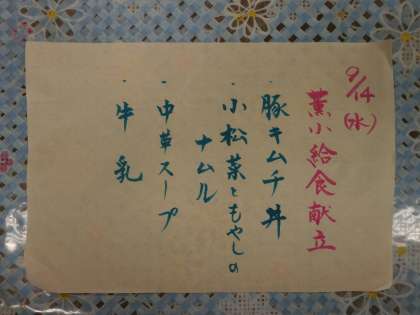 9/14(水)
薫小給食献立
・豚キムチ丼
・小松菜ともやしの
ナムル
・中華スープ
・牛乳